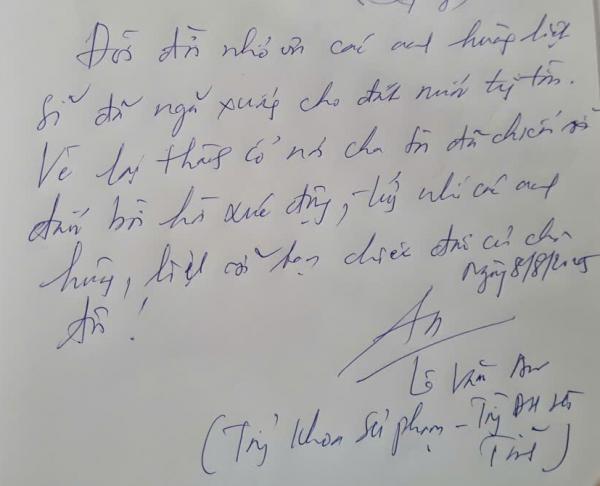 Đời đời nhớ ơn các anh hùng liệt
sĩ đã ngã xuống cho đất nước
Về lại thăm cổ nơi cha tôi đã chiến
đấu bồi hồi xúc động, nhớ các anh
hùng, liệt sĩ bạn chiến đấu của cha
tôi!
Ngày 8/8/2025
An
Lê Văn An
(Trg Khoa Sư phạm - Trg ĐH Hà
Tĩnh)